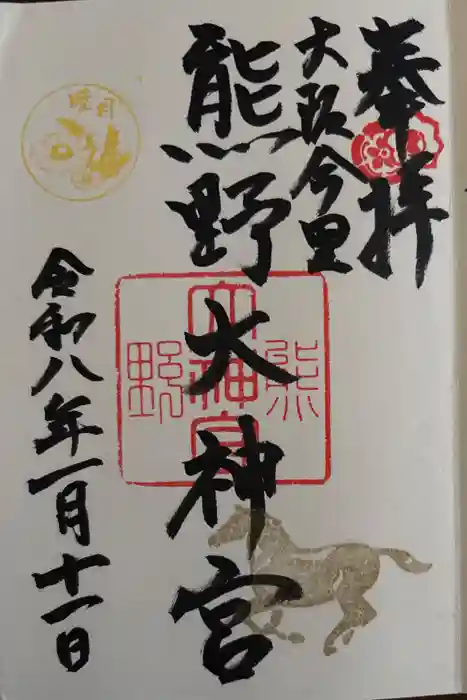 奉拝
大阪今里
熊野大神宮
令和八年一月十一日
睦月
熊野大神宮